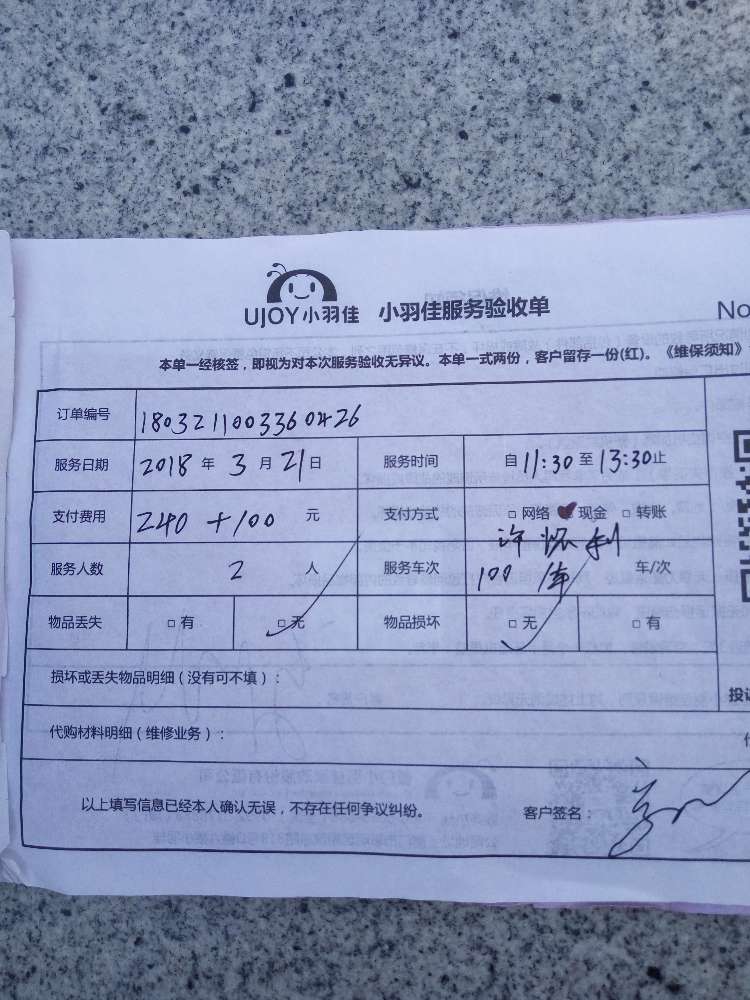 UJOY小羽佳 小羽佳服务验收单
No
本单一经核签，即视为对本次服务验收无异议。本单一式两份，客户留存一份(红)。《维保须知》
订单编号 1803211003360426
服务日期 2018 年 3 月 21 日 服务时间 自 11:30 至 13:30 止
支付费用 240 + 100 元 支付方式 □ 网络 现金 □ 转账
许 怀 利
服务人数 2 人 服务车次 100 /车 车/次
物品丢失 □ 有 □ 无 物品损坏 □ 无 □ 有
损坏或丢失物品明细（没有可不填）：
投诉
代购材料明细（维修业务）：
以上填写信息已经本人确认无误，不存在任何争议纠纷。 客户签名：